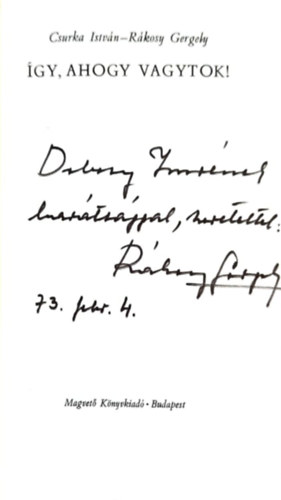 Csurka István–Rákosy Gergely
ÍGY, AHOGY VAGYTOK!
Dobozy Imrének
barátsággal, szeretettel:
Rákosy Gergely
73. febr. 4.
Magvető Könyvkiadó • Budapest